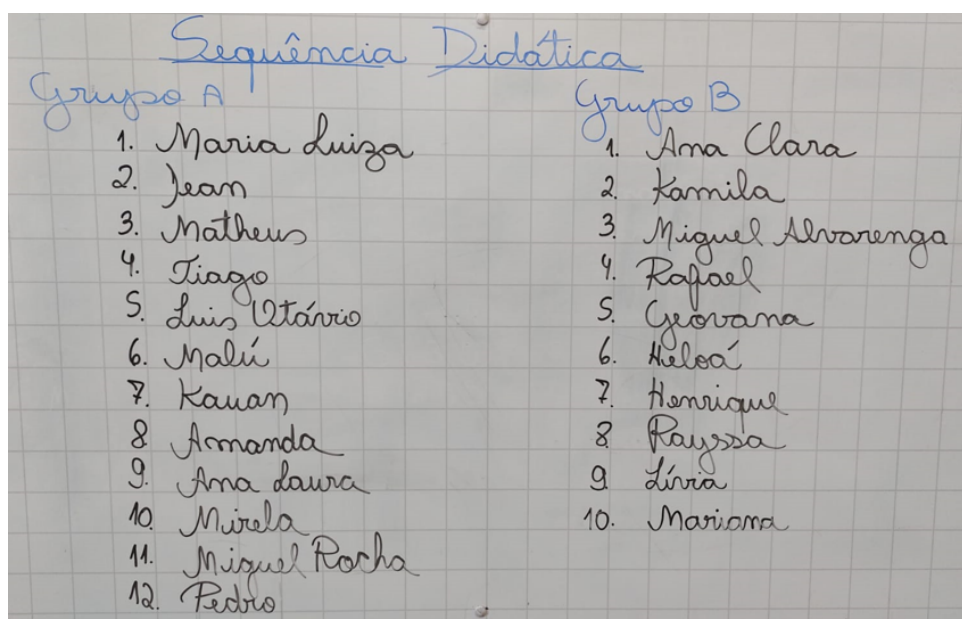 Sequência Didática
Grupo A
1. Maria Luiza
2. Jean
3. Matheus
4. Tiago
5. Luis Otávio
6. Malú
7. Kauan
8 Amanda
9. Ana Laura
10. Mirela
11. Miguel Rocha
12. Pedro
Grupo B
1. Ana Clara
2. Kamila
3. Miguel Alvarenga
4. Rafael
5. Geovana
6. Heloá
7. Henrique
8 Rayssa
9 Lívia
10. Mariana